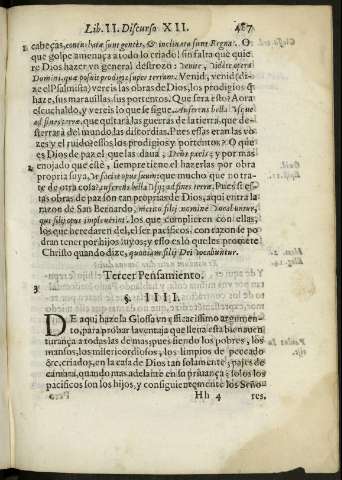 Lib. II. Discurso XII. 487
cabeças, conturbatæ sunt gentes, & inclinata sunt Regna. O
que golpe amenaça a todo lo criado! sin falta que quie
re Dios hazer vn general destrozo: Venite, & videte opera
Domini, quæ posuit prodigia super terram. Venid, venid (di-
ze el Psalmista) vereis las obras de Dios, los prodigios q̃
haze, sus marauillas, sus portentos. Que sera esto? Aora
escuchaldo, y vereis lo que se sigue. Auferens bella vsque
ad finem terræ, que quitarà las guerras de la tierra, que de-
sterrarà del mundo las discordias. Pues essas eran las vo-
zes y el ruido? essos los prodigios y portentos? O que
es Dios de paz el que las daua, Deus pacis; y por mas
enojado que estè, siempre tiene el hazerlas por obra
propria suya, Vt faciat opus suum: que mucho que no tra-
te de otra cosa? auferens bella vsque ad fines terræ. Pues si es-
tas obras de paz son tan proprias de Dios, aqui entra la
razon de San Bernardo, merito filij nomine vocabuntur,
qui filij opus impleuerint. los que cumplieren con ellas,
los que heredaren del, el ser pacificos, con razon se po-
dran tener por hijos suyos; y esso es lo que les promete
Christo quando dize, quoniam filij Dei vocabuntur.
Tercer Pensamiento.
§. IIII.
3
DE aqui haze la Glossa vn eficacissimo argumen-
to, para prouar la ventaja que lleua esta bienauen
turança a todas las de mas; pues siendo los pobres, los
mansos, los misericordiosos, los limpios de pecado
&c. criados, en la casa de Dios tan solamente; pajes de
cámara, quando mas adelante en su priuança; solos los
pacificos son los hijos, y consiguientemente los Seño
Hh 4 res.